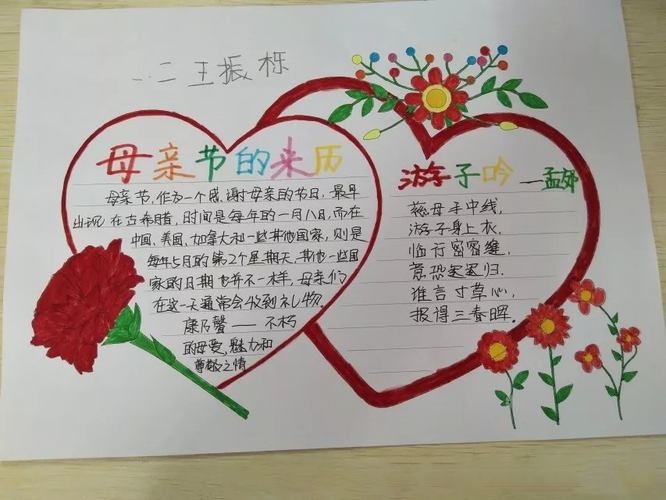 一.二王振栎
母亲节的来历
母亲节,作为一个感谢母亲的节日,最早
出现在古希腊,时间是每年的一月八日,而在
中国、美国、加拿大和一些其他国家,则是
每年5月的第2个星期天,其他一些国
家的日期也并不一样,母亲们
在这一天通常会收到礼物。
康乃馨——不朽
的母爱,魅力和
尊敬之情
游子吟 —孟郊
慈母手中线,
游子身上衣,
临行密密缝,
意恐迟迟归,
谁言寸草心,
报得三春晖。